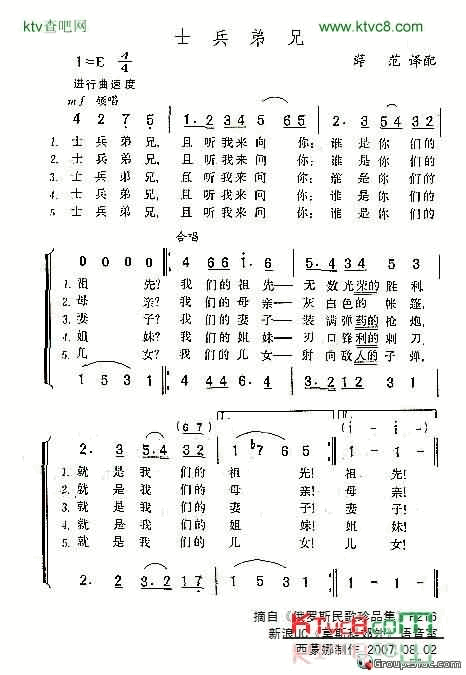 ktv查吧网
www.ktvc8.com
www.ktvc8.com
士兵弟兄
1=E 4/4
薛范 译配
进行曲速度
mf 领唱
4 2 7 5 | 1. 2 34 5 65 | 2. 3 54 32
1. 士兵弟兄, 且听我来问你: 谁是你们的
2. 士兵弟兄, 且听我来问你: 谁是你们的
3. 士兵弟兄, 且听我来问你: 谁是你们的
4. 士兵弟兄, 且听我来问你: 谁是你们的
5. 士兵弟兄, 且听我来问你: 谁是你们的
合唱
0 0 0 0 | 4 66 1. 6 | 5. 4 34 53
1. 祖先? 我们的祖先—无数光荣的胜利
2. 母亲? 我们的母亲—灰白色的帐篷
3. 妻子? 我们的妻子—装满弹药的枪炮
4. 姐妹? 我们的姐妹—刃口锋利的刺刀
5. 儿女? 我们的儿女—射向敌人的子弹
1 5 3 1 | 4 44 6. 4 | 3. 2 12 31
(67)
(i - i)
2. 3 5.4 32 | 1 b7 65 | 1 - 1 -
1. 就是我们的祖先! 祖先!
2. 就是我们的母亲! 母亲!
3. 就是我们的妻子! 妻子!
4. 就是我们的姐妹! 姐妹!
5. 就是我们的儿女! 儿女!
2. 2 3.2 17 | 1 5 3 1 | 1 - 1 -
摘自《俄罗斯民歌珍品集》P216
西蒙娜制作 2007. 08. 02
ktvc8.com
Group5iloc.com